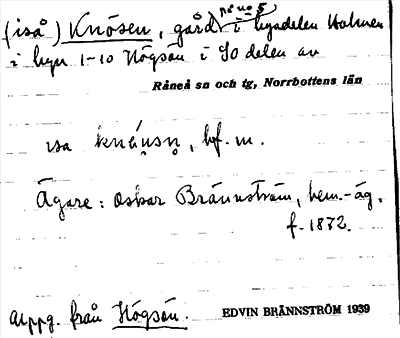 (iså) Knösen, gård på no 5 i bysdelen Holmen
i byn 1-10 Högsön i SO delen av
Råneå sn och tg, Norrbottens län
isa knǻu̥sn̥, bf. m.
Ägare: Oskar Brännström, hem.-äg.
f. 1872.
Uppg. från Högsön. EDVIN BRÄNNSTRÖM 1939